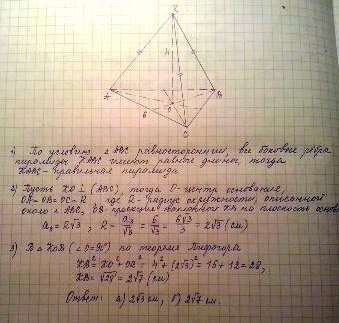 K
4
A
B
6
O
C
1) По условию △ ABC равносторонний, все боковые ребра
пирамиды KABC имеют равные длины, тогда
KABC - правильная пирамида
2) Пусть KO ⊥ (ABC), тогда O - центр основания,
OA = OB = OC = R, где R - радиус окружности, описанной
около △ ABC, OB - проекция наклонной KB на плоскость основ
R = a₃/√3 = 6/√3 = 6√3/3 = 2√3 (см)
3) В △ KOB (∠O=90°) по теореме Пифагора
KB² = KO² + OB² = 4² + (2√3)² = 16 + 12 = 28,
KB = √28 = 2√7 (см)
Ответ: а) 2√3 см, б) 2√7 см.